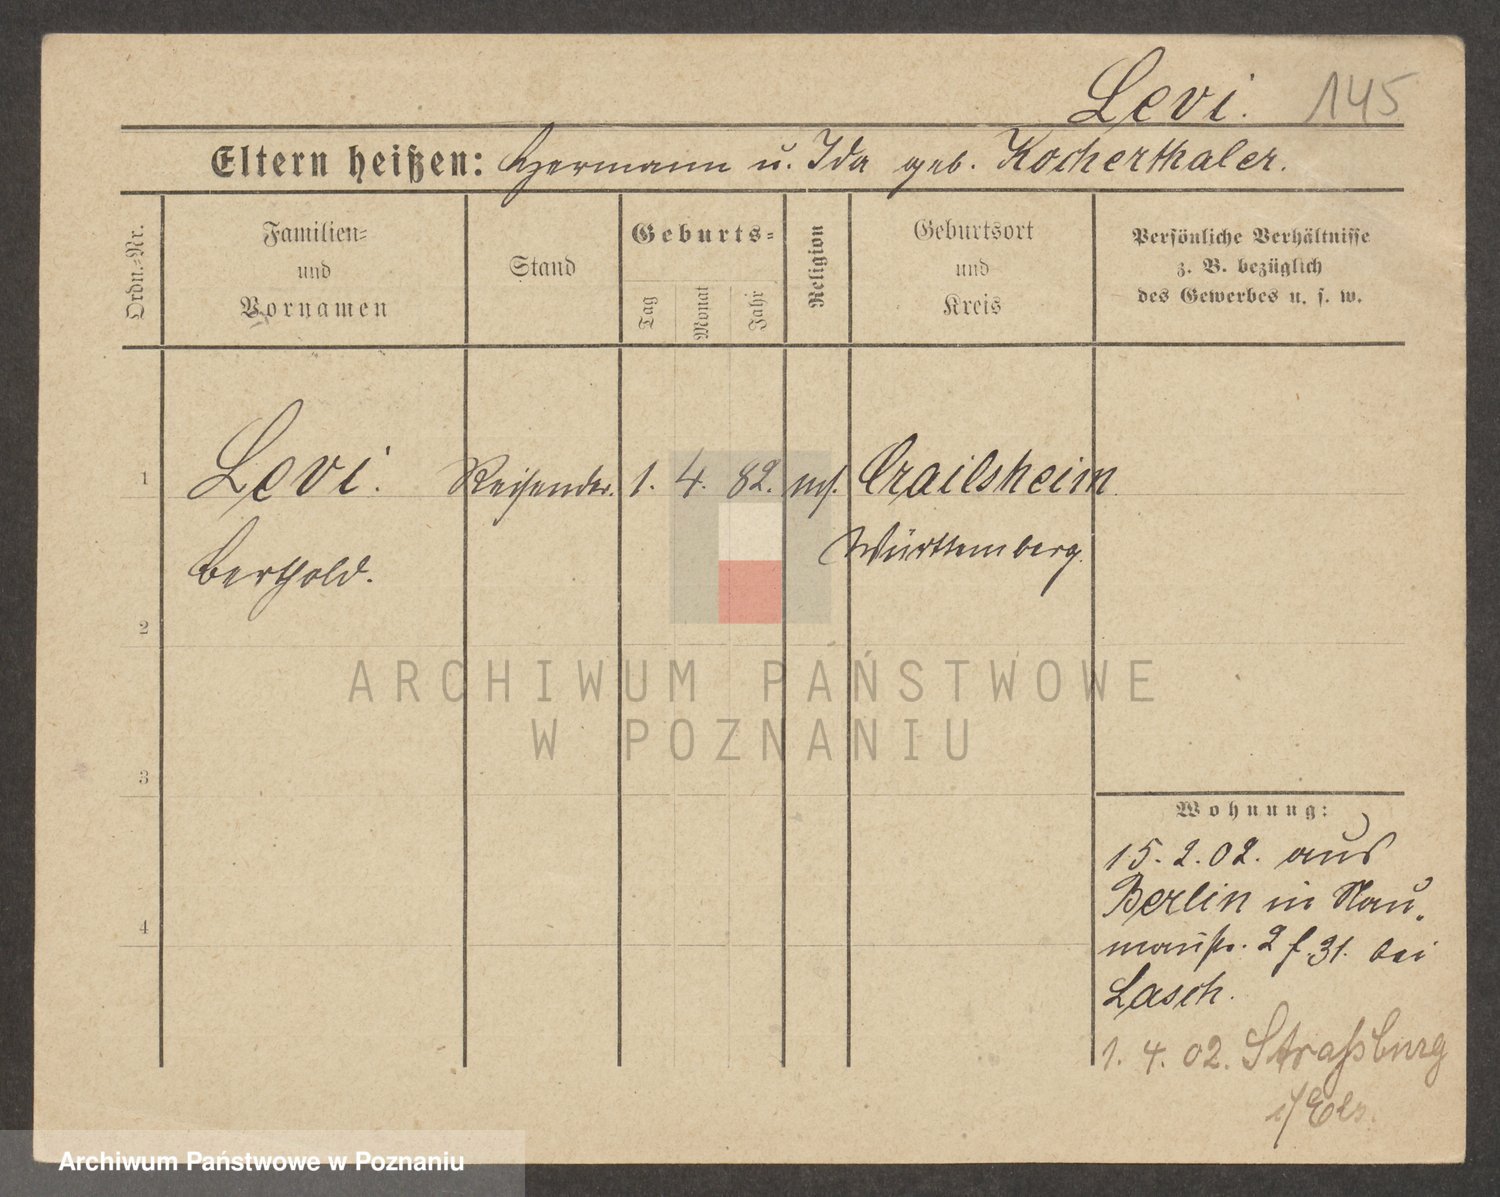 Levi. 145
Eltern heißen: Hermann u. Ida geb. Kocherthaler.
Ordn.-Nr.
Familien-
und
Vornamen
Stand
Geburts-
Tag
Monat
Jahr
Religion
Geburtsort
und
Kreis
Persönliche Verhältnisse
z. B. bezüglich
des Gewerbes u. s. w.
1 Levi. Reisender. 1. 4. 82. mos. Crailsheim
Berthold. Württemberg.
2
3
4
Wohnung:
15. 2. 02. aus
Berlin in Nau-
mannstr. 2 f. 31. bei
Lasch.
1. 4. 02. Strassburg
i/Els.
ARCHIWUM PAŃSTWOWE
W POZNANIU
Archiwum Państwowe w Poznaniu